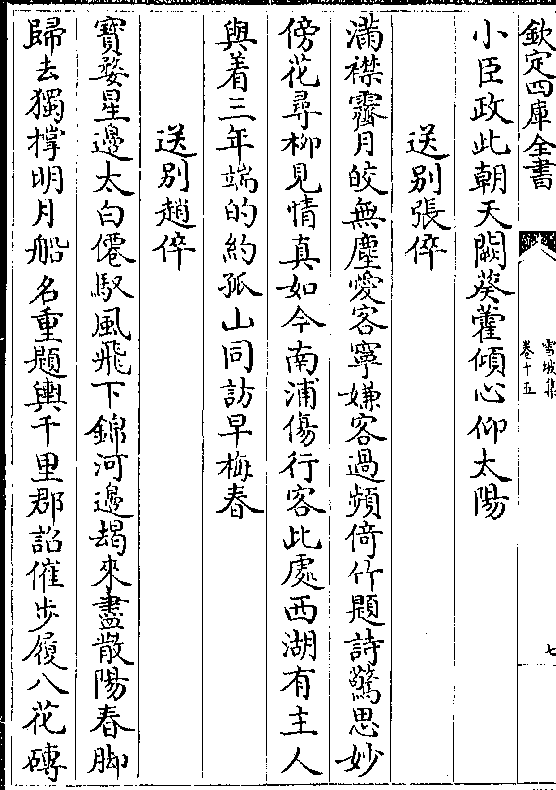 欽定四庫全書
雪坡集
卷十五
七
小臣政此朝天闕葵藿傾心仰太陽
送别張倅
滿襟霽月皎無塵愛客寧嫌客過頻倚竹題詩驚思妙
傍花尋柳見情真如今南浦傷行客此處西湖有主人
與着三年端的約孤山同訪早梅春
送别趙倅
寶婺星邊太白僊馭風飛下錦河邊朅來盡散陽春脚
歸去獨撑明月船名重題輿千里郡詔催步履八花磚